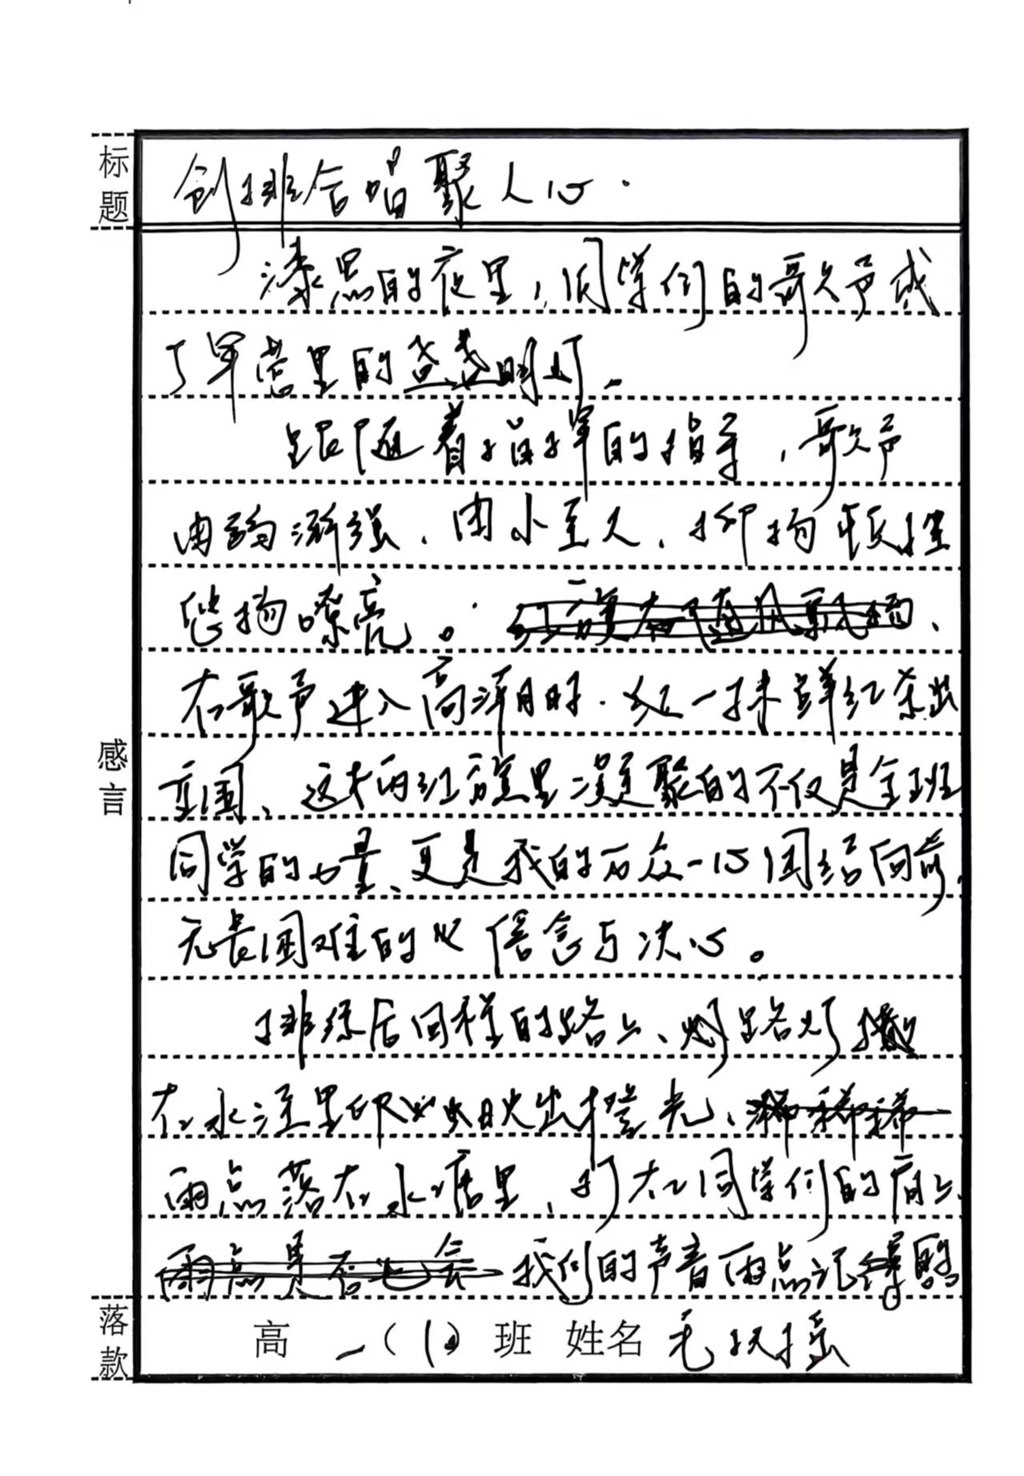 标题
创排合唱聚人心.
漆黑的夜里,同学们的歌声成
了军营里的盏盏明灯。
跟随着指挥的指导,歌声
由弱渐强,由小至大,抑扬顿挫
悠扬嘹亮。
在歌声进入高潮时.一抹鲜红
这里凝聚的不仅是全班
感言
同学的力量、更是我的万众一心团结向前,
无畏困难的信念与决心。
排练后回程的路上、路灯
在水洼里映出橙光、
雨点落在水洼里,打在同学们的肩上、
我们的声音雨点记得
落款
高一(1)班 姓名 毛扶摇